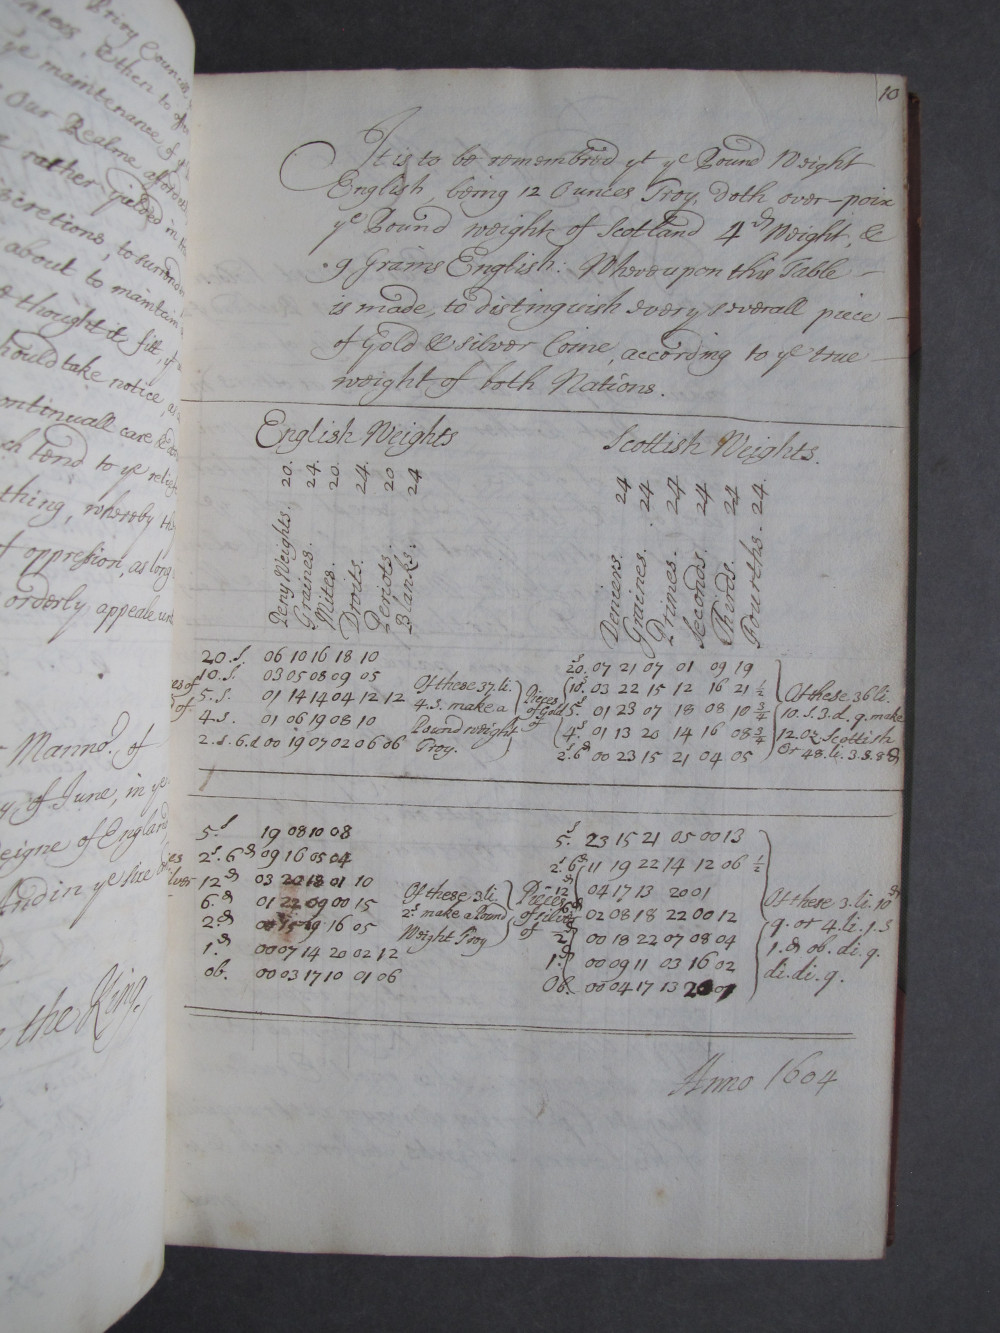 Privy Councill
& then to
ye maintenance of
Our Realme aforesd
rather yielded in
discretions, to surrender
about to maintain
thought it fitt, yt
should take notice, as
continuall care
tend to ye
thing, whereby
of oppression, as long
orderly appeale
Manno.r of
of June, in ye
Reigne of England,
And in ye
the King.
10
It is to be remembred yt ye Pound Weight
English, being 12 Ounces Troy, doth over-poix
ye Pound weight of Scotland 4 d Weight, &
9 Grains English: Whereupon this Table
is made, to distinguish every severall piece
of Gold & silver Coine, according to ye true
weight of both Nations.
English Weights
Peny Weights. 20.
Graines. 24.
Mites. 20.
Droits. 24.
Periots. 20
Blanks. 24
20.s. 06 10 16 18 10
10.s. 03 05 08 09 05
5.s. 01 14 14 04 12 12
4.s. 01 06 19 08 10
2.s.6.d 00 19 07 02 06 06
Of these 37.li.
4.s. make a
Pound weight
Troy.
Scottish Weights.
Deniers. 24
Graines. 24
Primes. 24
Seconds. 24
Therds. 24
Fourths. 24.
Pieces
of Gold
of
20.s 07 21 07 01 09 19
10.s 03 22 15 12 16 21 ½
5.s 01 23 07 18 08 10 ¾
4.s 01 13 20 14 16 08 ¾
2.s 6.d 00 23 15 21 04 05
Of these 36 li.
10.s.3.d.q. make
12.oz. Scottish
Or 48.li.3.s.8 d
5.s 19 08 10 08
2.s. 6.d 09 16 05 04
12.d 03 20 18 01 10
6.d 01 22 09 00 15
2.d 00 15 09 16 05
1.d 00 07 14 20 02 12
ob. 00 03 17 10 01 06
Of these 3.li.
2.s make a Pound
Weight Troy
Pieces
of silver
of
5.s 23 15 21 05 00 13
2.s 6.d 11 19 22 14 12 06 ½
12.d 04 17 13 20 01
6.d 02 08 18 22 00 12
2.d 00 18 22 07 08 04
1.d 00 09 11 03 16 02
Ob. 00 04 17 13 20 01
Of these 3.li.10 d
q. or 4.li.1.s
1.d ob. di. q.
di. di. q.
Anno 1604